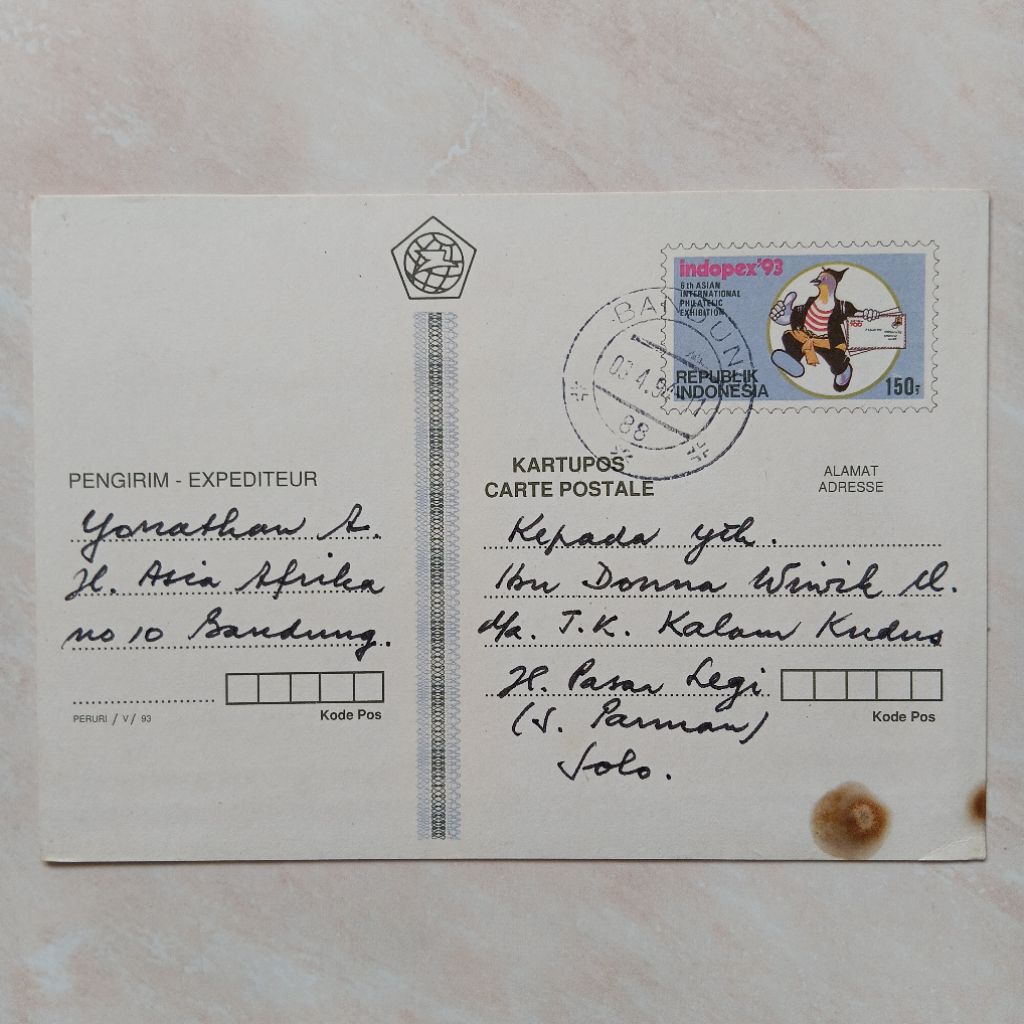 indopex'93
6th ASIAN
INTERNATIONAL
PHILATELIC
EXHIBITION
REPUBLIK
INDONESIA
150,-
BANDUNG
03.4.94
88
PENGIRIM - EXPEDITEUR
Yonathan A.
Jl. Asia Afrika
no 10 Bandung.
Kode Pos
PERURI / V / 93
KARTUPOS
CARTE POSTALE
ALAMAT
ADRESSE
Kepada yth.
Ibu Donna Wiwik M.
d/a. T.K. Kalam Kudus
Jl. Pasar Legi
Kode Pos
(S. Parman)
Solo.